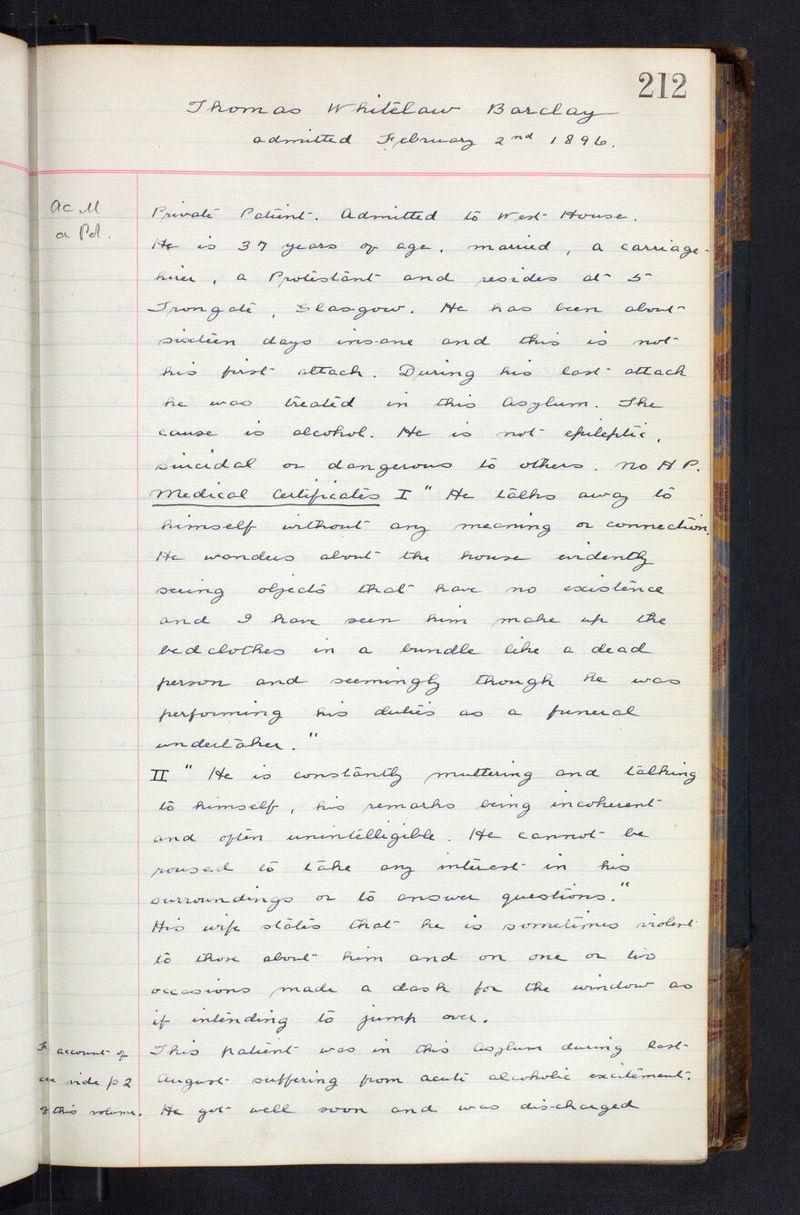 212
Thomas Whitelaw Barclay
admitted February 2nd 1896.
Ac. M
a Pd.
Private Patient. Admitted to West House.
He is 37 years of age, married, a carriage-
hirer, a Protestant and resides at 5
Trongate, Glasgow. He has been about
sixteen days insane and this is not
his first attack. During his last attack
he was treated in this Asylum. The
cause is alcohol. He is not epileptic,
suicidal or dangerous to others. No H P.
Medical Certificates I " He talks away to
himself without any meaning or connection.
He wanders about the house evidently
seeing objects that have no existence
and I have seen him make up the
bedclothes in a bundle like a dead
person and seemingly though he was
performing his duties as a funeral
undertaker. "
II " He is constantly muttering and talking
to himself, his remarks being incoherent
and often unintelligible. He cannot be
roused to take any interest in his
surroundings or to answer questions. "
His wife states that he is sometimes violent
to those about him and on one or two
occasions made a dash for the window as
if intending to jump over.
account of
vide p 2
this volume.
This patient was in this Asylum during last
August suffering from acute alcoholic excitement.
He got well soon and was discharged